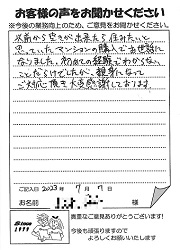 お客様の声をお聞かせください
※今後の業務向上のため、ご意見をお聞かせください。
以前から空きが出来たら住みたいと
思っていたマンションの購入でお世話に
なりました。初めての経験でわからない
ことだらけでしたが、親身になって
ご対応頂き大変感謝しております。
ご記入日 2023年 7月 7日
お名前 様
貴重なご意見ありがとうございます!
今後も頑張りますので
よろしくお願いいたします
Since
1979